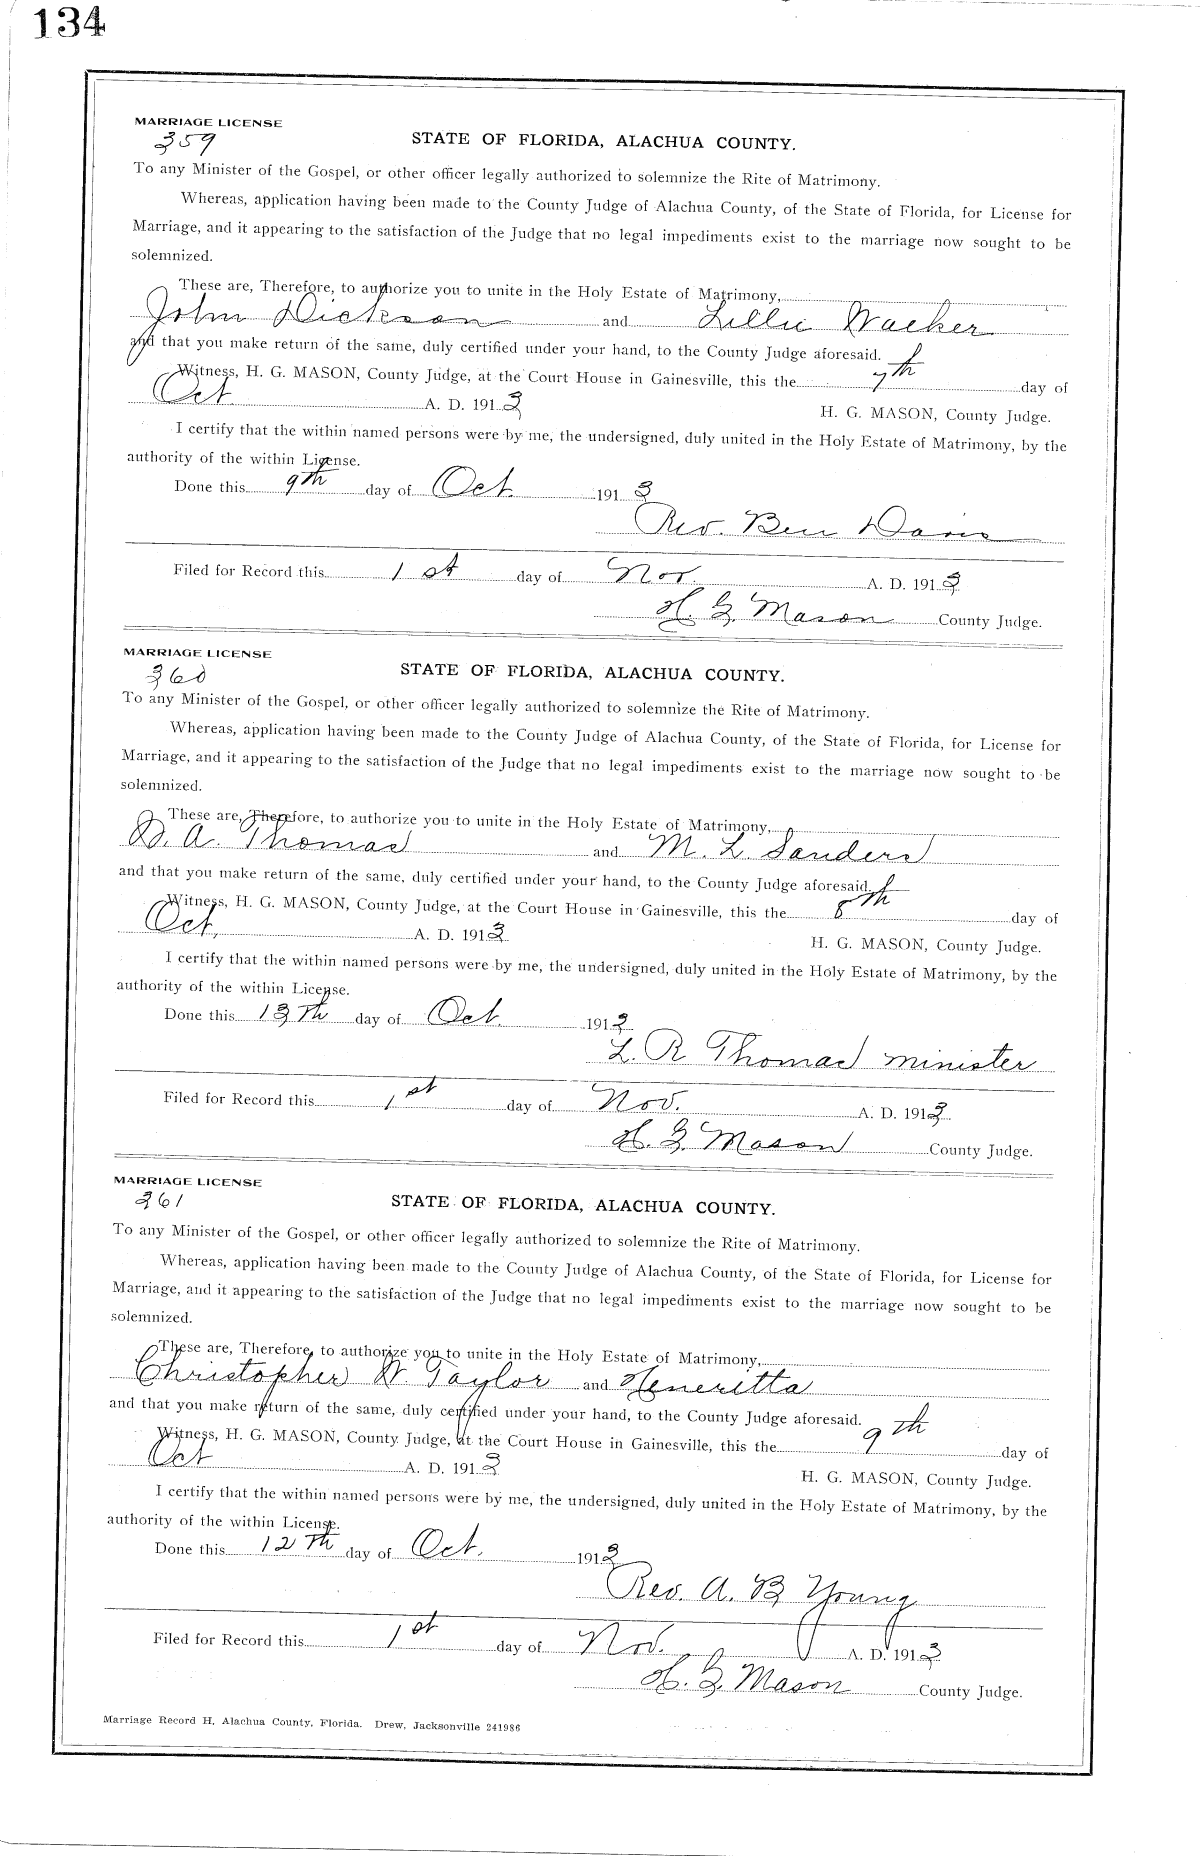 134
MARRIAGE LICENSE
359
STATE OF FLORIDA, ALACHUA COUNTY.
To any Minister of the Gospel, or other officer legally authorized to solemnize the Rite of Matrimony.
Whereas, application having been made to the County Judge of Alachua County, of the State of Florida, for License for
Marriage, and it appearing to the satisfaction of the Judge that no legal impediments exist to the marriage now sought to be
solemnized.
These are, Therefore, to authorize you to unite in the Holy Estate of Matrimony,
John Dickson and Lillie Walker
and that you make return of the same, duly certified under your hand, to the County Judge aforesaid.
Witness, H. G. MASON, County Judge, at the Court House in Gainesville, this the 7th day of
Oct A. D. 1913 H. G. MASON, County Judge.
I certify that the within named persons were by me, the undersigned, duly united in the Holy Estate of Matrimony, by the
authority of the within License.
Done this 9th day of Oct. 1913
Rev. Ben Davis
Filed for Record this 1st day of Nov. A. D. 1913
H. G. Mason County Judge.
MARRIAGE LICENSE
360
STATE OF FLORIDA, ALACHUA COUNTY.
To any Minister of the Gospel, or other officer legally authorized to solemnize the Rite of Matrimony.
Whereas, application having been made to the County Judge of Alachua County, of the State of Florida, for License for
Marriage, and it appearing to the satisfaction of the Judge that no legal impediments exist to the marriage now sought to be
solemnized.
These are, Therefore, to authorize you to unite in the Holy Estate of Matrimony,
A. Thomas and M. L. Sanders
and that you make return of the same, duly certified under your hand, to the County Judge aforesaid.
Witness, H. G. MASON, County Judge, at the Court House in Gainesville, this the 8th day of
Oct. A. D. 1913 H. G. MASON, County Judge.
I certify that the within named persons were by me, the undersigned, duly united in the Holy Estate of Matrimony, by the
authority of the within License.
Done this 13th day of Oct. 1913
L. R Thomas minister
Filed for Record this 1st day of Nov. A. D. 1913
H. G. Mason County Judge.
MARRIAGE LICENSE
361
STATE OF FLORIDA, ALACHUA COUNTY.
To any Minister of the Gospel, or other officer legally authorized to solemnize the Rite of Matrimony.
Whereas, application having been made to the County Judge of Alachua County, of the State of Florida, for License for
Marriage, and it appearing to the satisfaction of the Judge that no legal impediments exist to the marriage now sought to be
solemnized.
These are, Therefore, to authorize you to unite in the Holy Estate of Matrimony,
Christopher W. Taylor and Heneritta
and that you make return of the same, duly certified under your hand, to the County Judge aforesaid.
Witness, H. G. MASON, County Judge, at the Court House in Gainesville, this the 9th day of
Oct A. D. 1913 H. G. MASON, County Judge.
I certify that the within named persons were by me, the undersigned, duly united in the Holy Estate of Matrimony, by the
authority of the within License.
Done this 12th day of Oct. 1913
Rev. A. B Young
Filed for Record this 1st day of Nov. A. D. 1913
H. G. Mason County Judge.
Marriage Record H, Alachua County, Florida. Drew, Jacksonville 241986